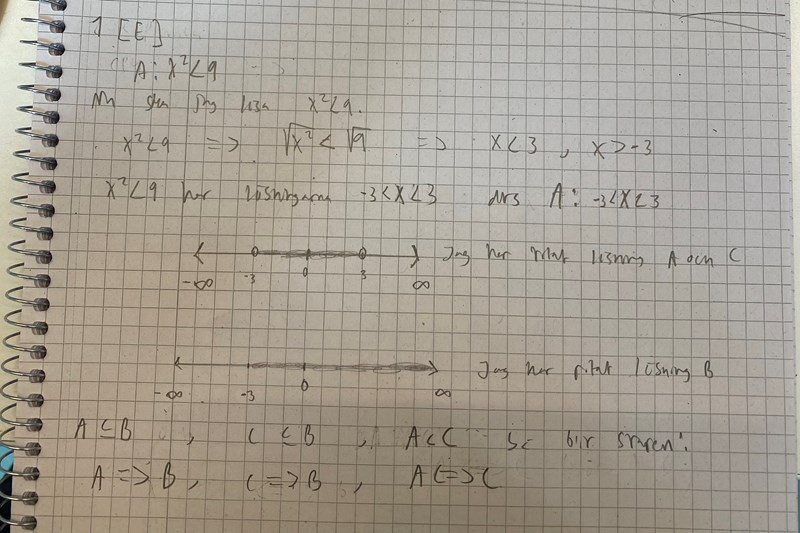 1 [E]
A: x²<9
Nu ska jag lösa x²<9.
x²<9 => √x² < √9 => x<3 , x>-3
x²<9 har lösningarna -3<x<3 dvs A: -3<x<3
Jag har ritat lösning A och C
-∞ -3 0 3 ∞
Jag har ritat lösning B
-∞ -3 0 ∞
A ⊆ B , C ⊆ B , A C C så blir svaren:
A => B , C => B , A <=> C